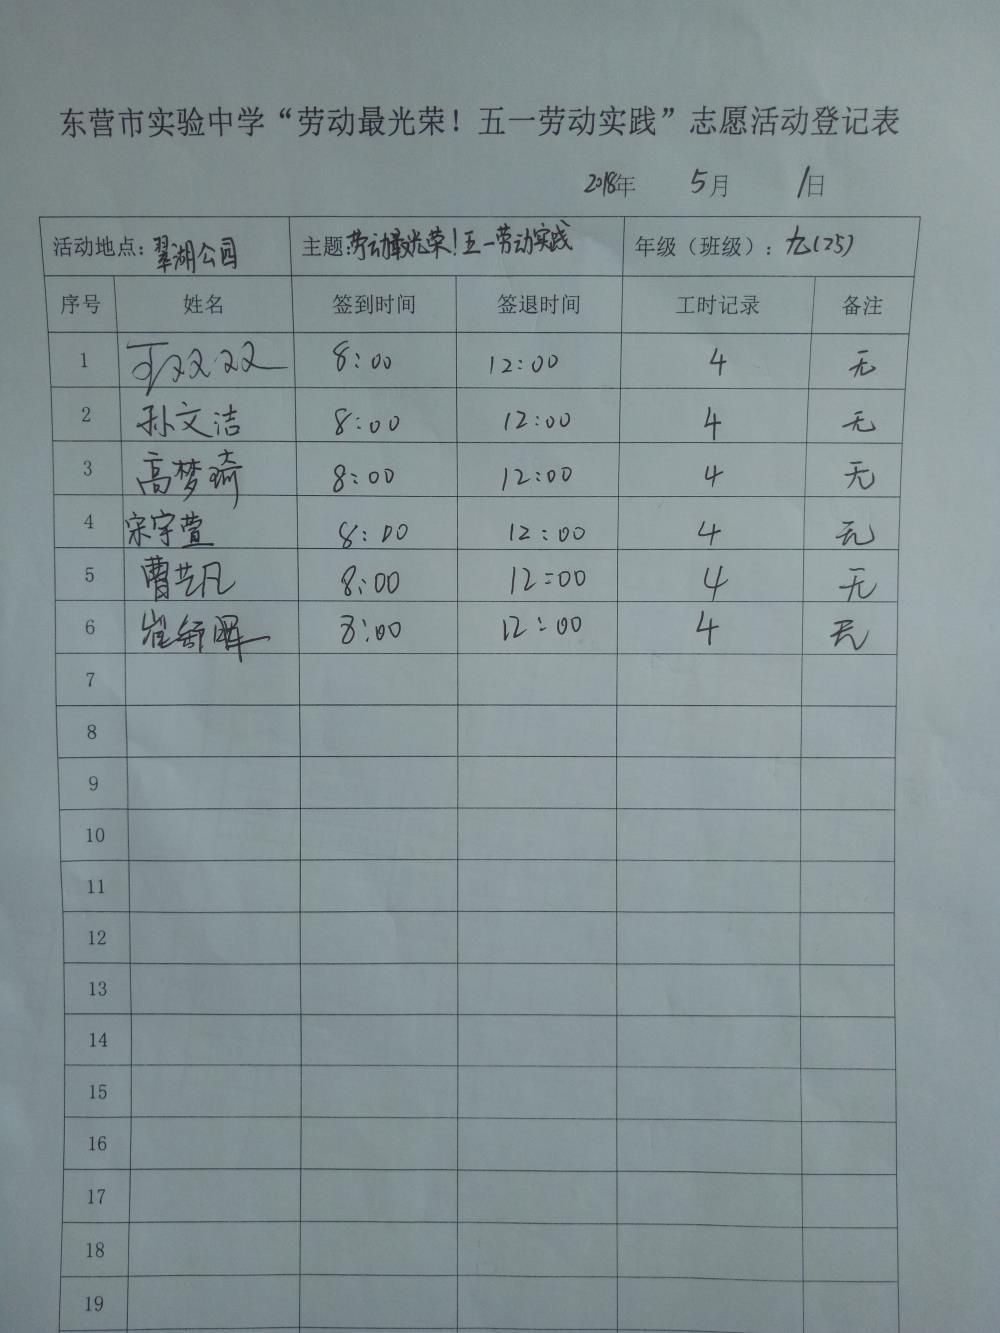 东营市实验中学“劳动最光荣！五一劳动实践”志愿活动登记表
2018年 5月 1日
活动地点：翠湖公园 主题：劳动最光荣！五一劳动实践 年级（班级）：九（25）
序号 姓名 签到时间 签退时间 工时记录 备注
1 王双双 8:00 12:00 4 无
2 孙文洁 8:00 12:00 4 无
3 高梦琦 8:00 12:00 4 无
4 宋宇萱 8:00 12:00 4 无
5 曹艺凡 8:00 12:00 4 无
6 崔舒晖 8:00 12:00 4 无
7
8
9
10
11
12
13
14
15
16
17
18
19